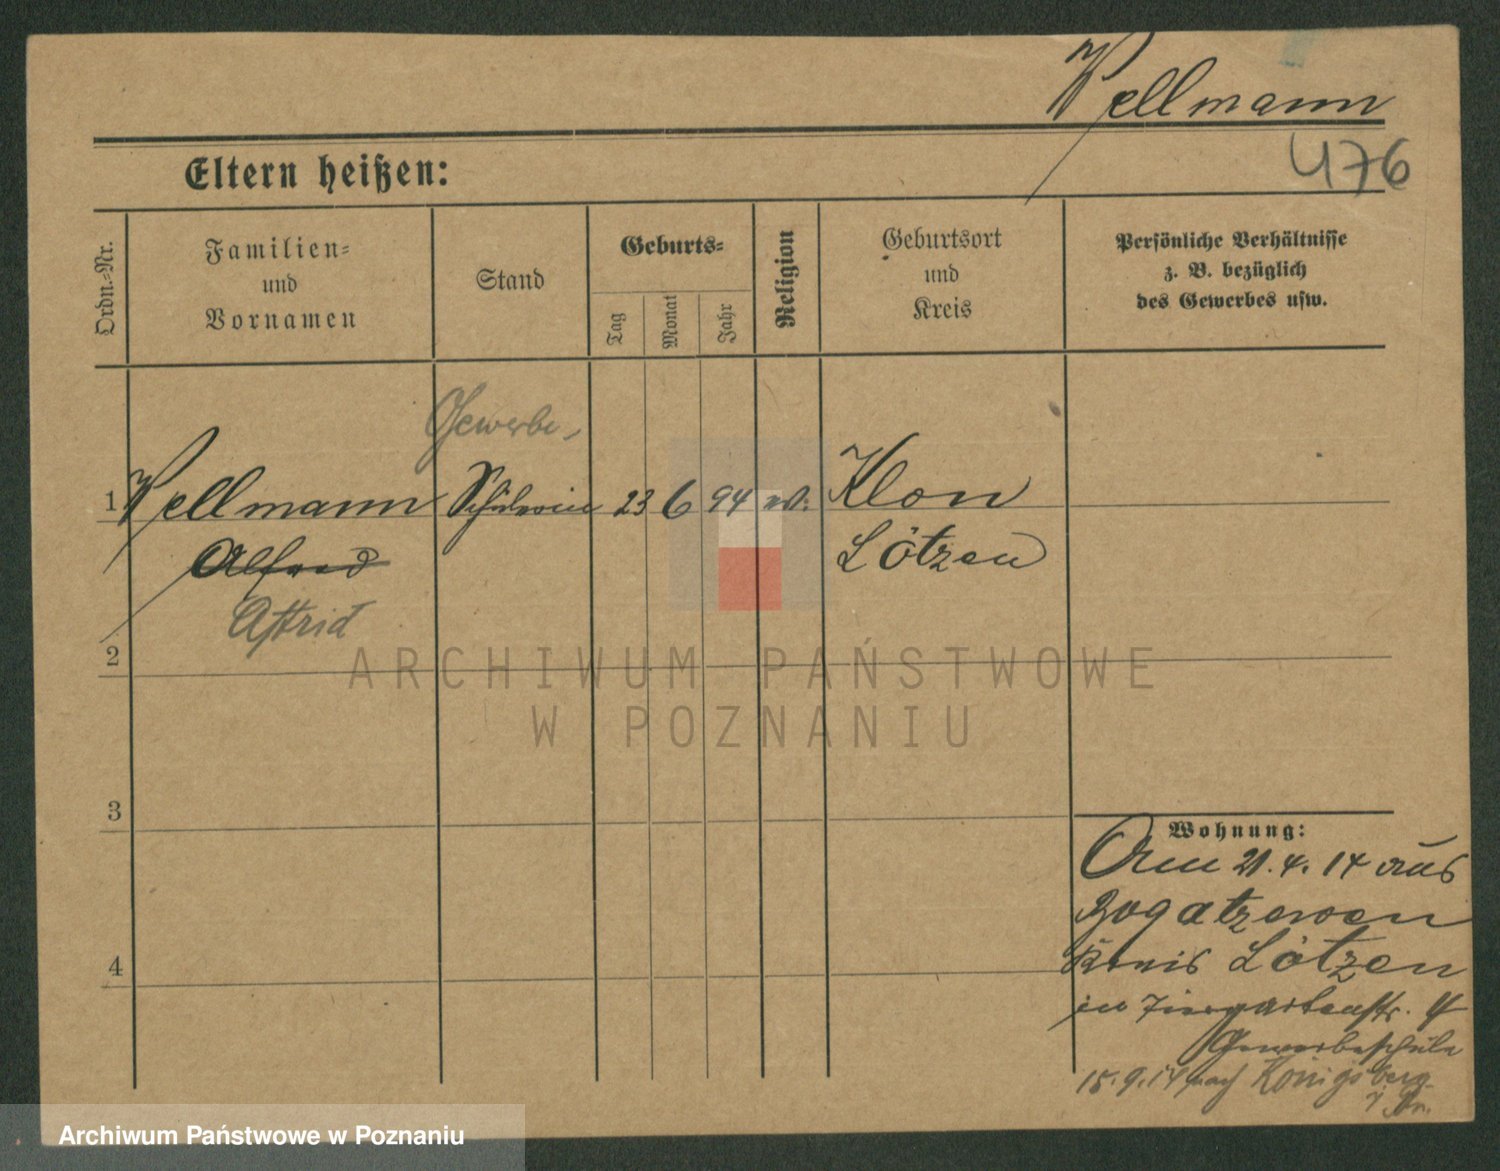 Wellmann
476
Eltern heißen:
Ordn.-Nr.
Familien-
und
Vornamen
Stand
Geburts-
Tag
Monat
Jahr
Religion
Geburtsort
und
Kreis
Persönliche Verhältnisse
z. B. bezüglich
des Gewerbes usw.
Gewerbe-
1 Wellmann Schülerin 23 6 94 ev: Klon
Alfred Lötzen
Astrid
2
ARCHIWUM PAŃSTWOWE
W POZNANIU
3
Wohnung:
Am 21.4.14 aus
Bogatzewen
Kreis Lötzen
4
in Tiergartenstr. 4
Gewerbeschule
15.9.14 nach Königsberg
i Pr.
Archiwum Państwowe w Poznaniu